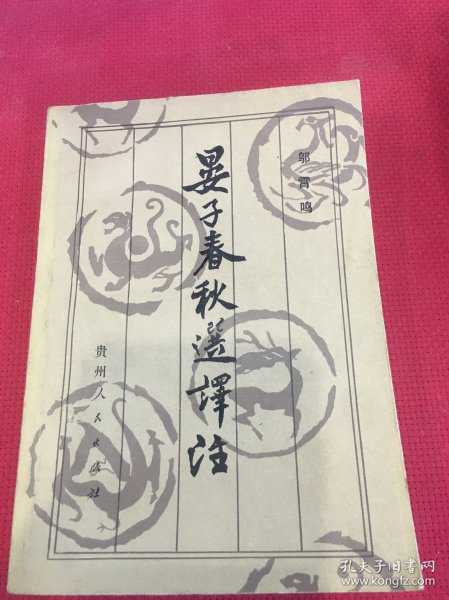 邬霄鸣
晏子春秋選譯注
贵州人民出版社
孔夫子旧书网
www.kongfz.com